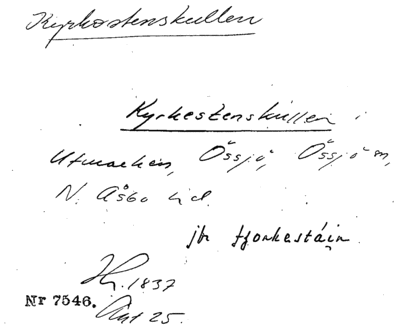 Kyrkostenskullen
Kyrkestenskullen i
Utmarken, Össjö, Össjö sn,
N. Åsbo hd.
jfr
H. 1837
Nr 7546.
Akt 25.